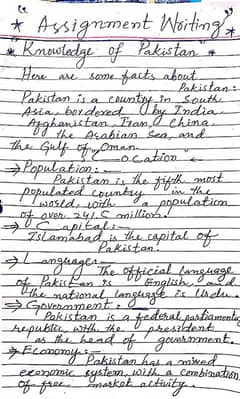 "Assignment Writing"
"Knowledge of Pakistan"
Here are some facts about
Pakistan:
Pakistan is a country in South
Asia, bordered by India,
Afghanistan, Iran, China,
the Arabian Sea, and
the Gulf of Oman.
Location
→ Population:-
Pakistan is the fifth most
populated country in the
world, with a population
of over 241.5 million.
→ Capital:-
Islamabad is the capital of
Pakistan.
→ Language:-
The official language
of Pakistan is English, and
the national language is Urdu.
→ Government:-
Pakistan is a federal parliamentary
republic, with the president
as the head of government.
→ Economy:-
Pakistan has a mixed
economic system, with a combination
of free market activity.